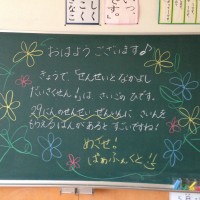 おはようございます♪
きょうで、「せんせいとなかよし
だいさくせん!」は、さいごのひです。
29にんのせんせいぜんいんに さいんを
もらえるはんがあると すごいですね!
めざせ!
ぱぁふぇくと!!